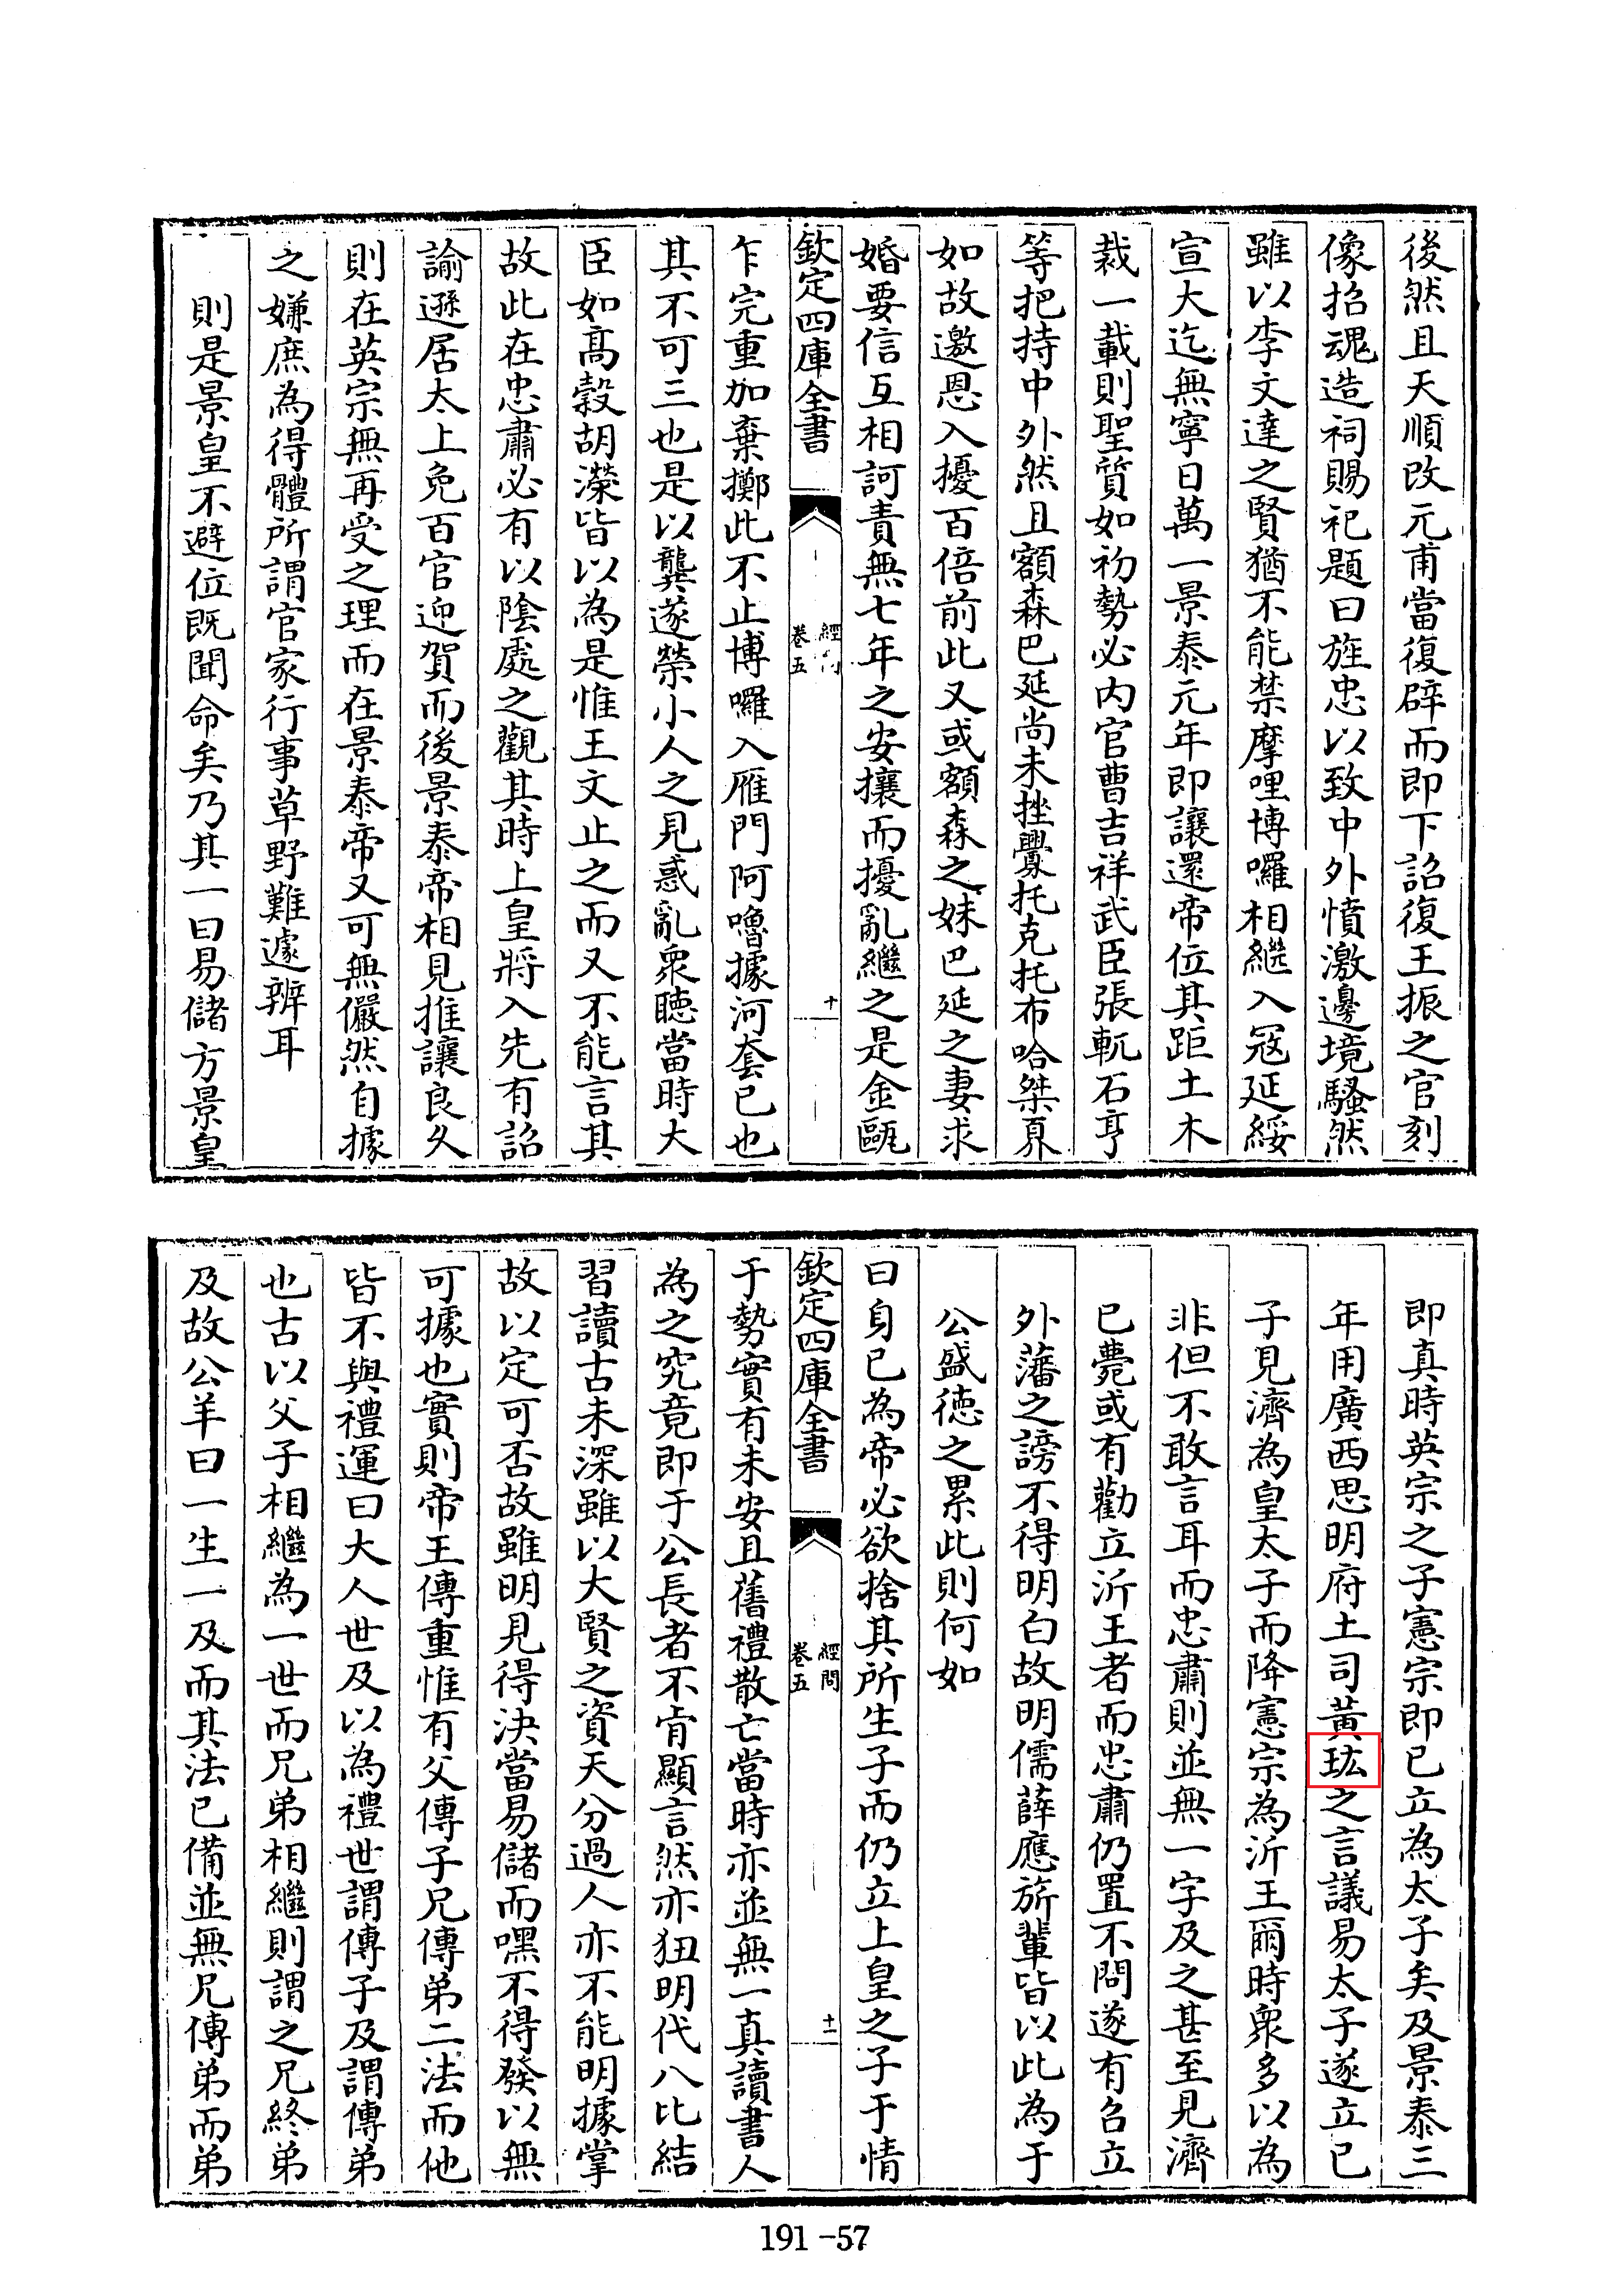 後然且天順改元甫當復辟而即下詔復王振之官刻
像招魂造祠賜祀題曰旌忠以致中外憤激邊境騷然
雖以李文達之賢猶不能禁摩哩博囉相繼入冦延綏
宣大迄無寧日萬一景泰元年即讓還帝位其距土木
裁一載則聖質如初勢必内官曹吉祥武臣張軏石亨
等把持中外然且額森巴延尚未挫釁托克托布哈桀
如故邀恩入擾百倍前此又或額森之妹巴延之妻求
婚要信互相訶責無七年之安攘而擾亂繼之是金甌
欽定四庫全書
經問
卷五
十
乍完重加棄擲此不止博囉入雁門阿嚕據河套已也
其不可三也是以龔遂榮小人之見惑亂衆聽當時大
臣如高穀胡濙皆以為是惟王文止之而又不能言其
故此在忠肅必有以陰處之觀其時上皇將入先有詔
諭遜居太上免百官迎賀而後景泰帝相見推讓良久
則在英宗無再受之理而在景泰帝又可無儼然自據
之嫌庶為得體所謂官家行事草野難遽辨耳
則是景皇不避位既聞命矣乃其一曰易儲方景皇
即真時英宗之子憲宗即已立為太子矣及景泰三
年用廣西思明府土司黃玹之言議易太子遂立已
子見濟為皇太子而降憲宗為沂王爾時衆多以為
非但不敢言耳而忠肅則並無一字及之甚至見濟
已薨或有勸立沂王者而忠肅仍置不問遂有召立
外藩之謗不得明白故明儒薛應旂輩皆以此為于
公盛徳之累此則何如
曰身已為帝必欲捨其所生子而仍立上皇之子于情
欽定四庫全書
經問
卷五
十一
于勢實有未安且舊禮散亡當時亦並無一真讀書人
為之究竟即于公長者不肯顯言然亦狃明代八比結
習讀古未深雖以大賢之資天分過人亦不能明據掌
故以定可否故雖明見得決當易儲而嘿不得發以無
可據也實則帝王傳重惟有父傳子兄傳弟二法而他
皆不與禮運曰大人世及以為禮世謂傳子及謂傳弟
也古以父子相繼為一世而兄弟相繼則謂之兄終弟
及故公羊曰一生一及而其法已備並無兄傳弟而弟
191-57